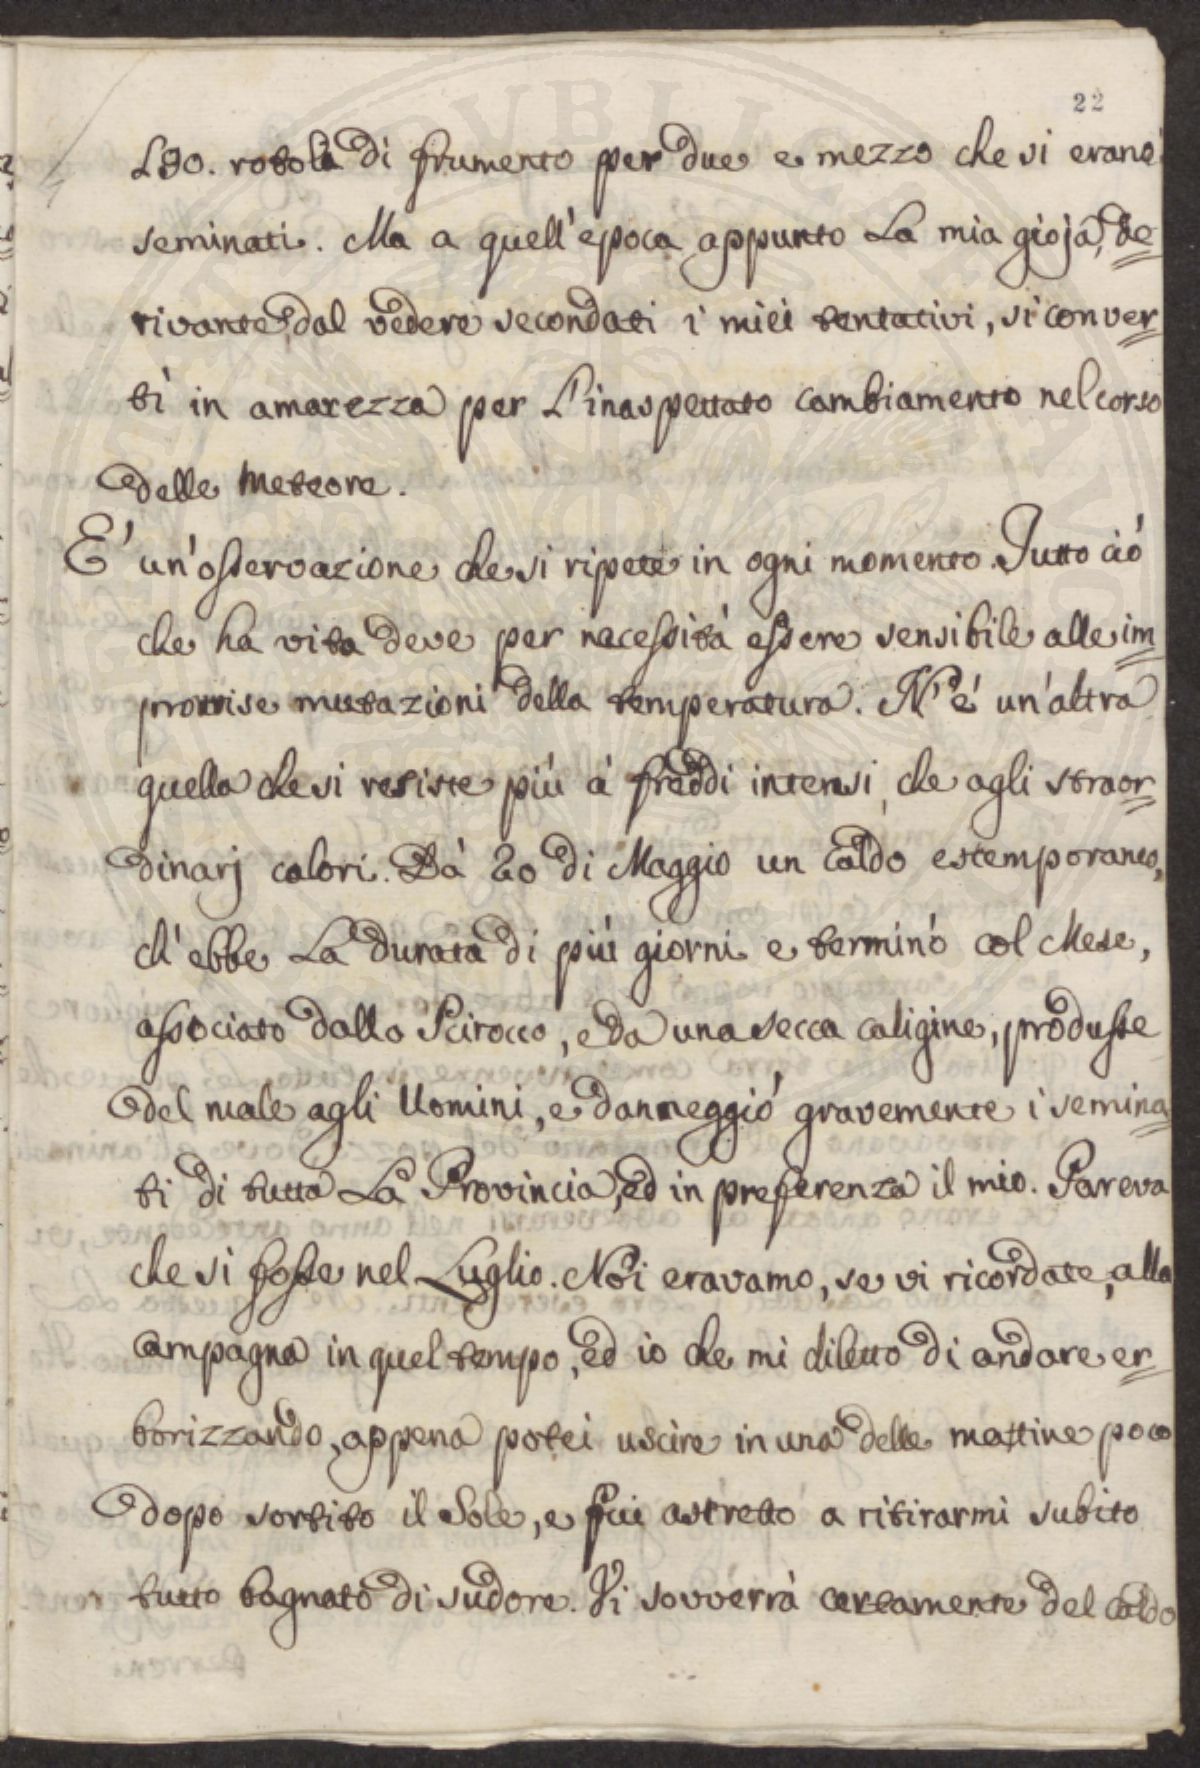 22
130. rotola di frumento per due e mezzo che si erano
seminati. Ma a quell'epoca appunto la mia gioja, de=
rivante dal vedere secondati i miei tentativi, si conver=
tì in amarezza per l'inaspettato cambiamento nel corso
delle meteore.
E' un'osservazione che si ripete in ogni momento. Tutto ciò
che ha vita deve per necessità essere sensibile alle im=
provvise mutazioni della temperatura. N'è un'altra
quella che si resiste più à freddi intensi, che agli straor=
dinarj calori. Dà 20 di Maggio un caldo estemporaneo,
ch'ebbe la durata di più giorni e terminò col Mese,
associato dallo Scirocco, e da una secca caligine, produsse
del male agli Uomini, e danneggiò gravemente i semina=
ti di tutta la Provincia, ed in preferenza il mio. Pareva
che si fosse nel Luglio. Noi eravamo, se vi ricordate, alla
campagna in quel tempo, ed io che mi diletto di andare er=
borizzando, appena potei uscire in una delle mattine poco
dopo sortito il Sole, e fui astretto a ritirarmi subito
tutto bagnato di sudore. Vi sovverrà certamente del caldo